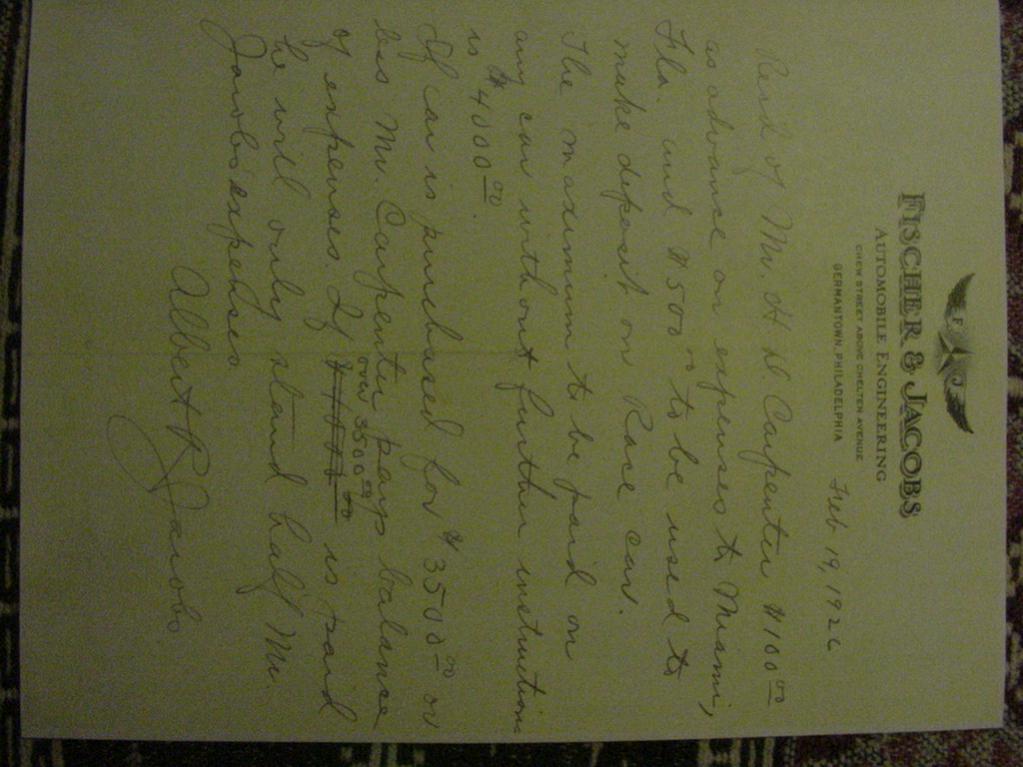 F J
FISCHER & JACOBS
AUTOMOBILE ENGINEERING
CHEW STREET ABOVE CHELTEN AVENUE
GERMANTOWN, PHILADELPHIA
Feb 19, 1926
Recd of Mr. H. D. Carpenter $100 00
as advance on expenses to Miami,
Fla. and $500 00 to be used to
make deposit on Race car.
The maximum to be paid on
any car without further instructions
is $4000 00.
If car is purchased for $3500 00 or
less Mr. Carpenter pays balance
over 3500 00
of expenses. If is paid
he will only stand half Mr.
Jacobs expenses.
Albert R Jacobs.